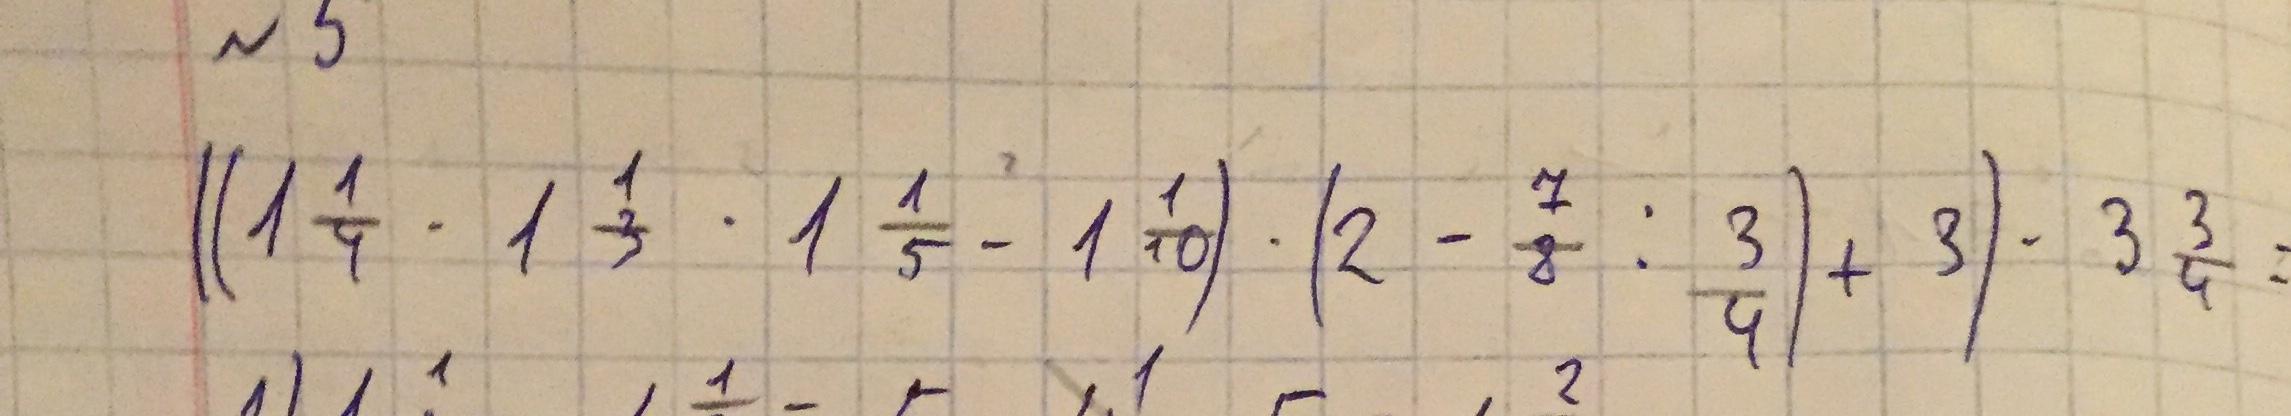 №5
((1 1/4 · 1 1/3 · 1 1/5 - 1 1/10) · (2 - 7/8 : 3/4) + 3) · 3 3/4 =